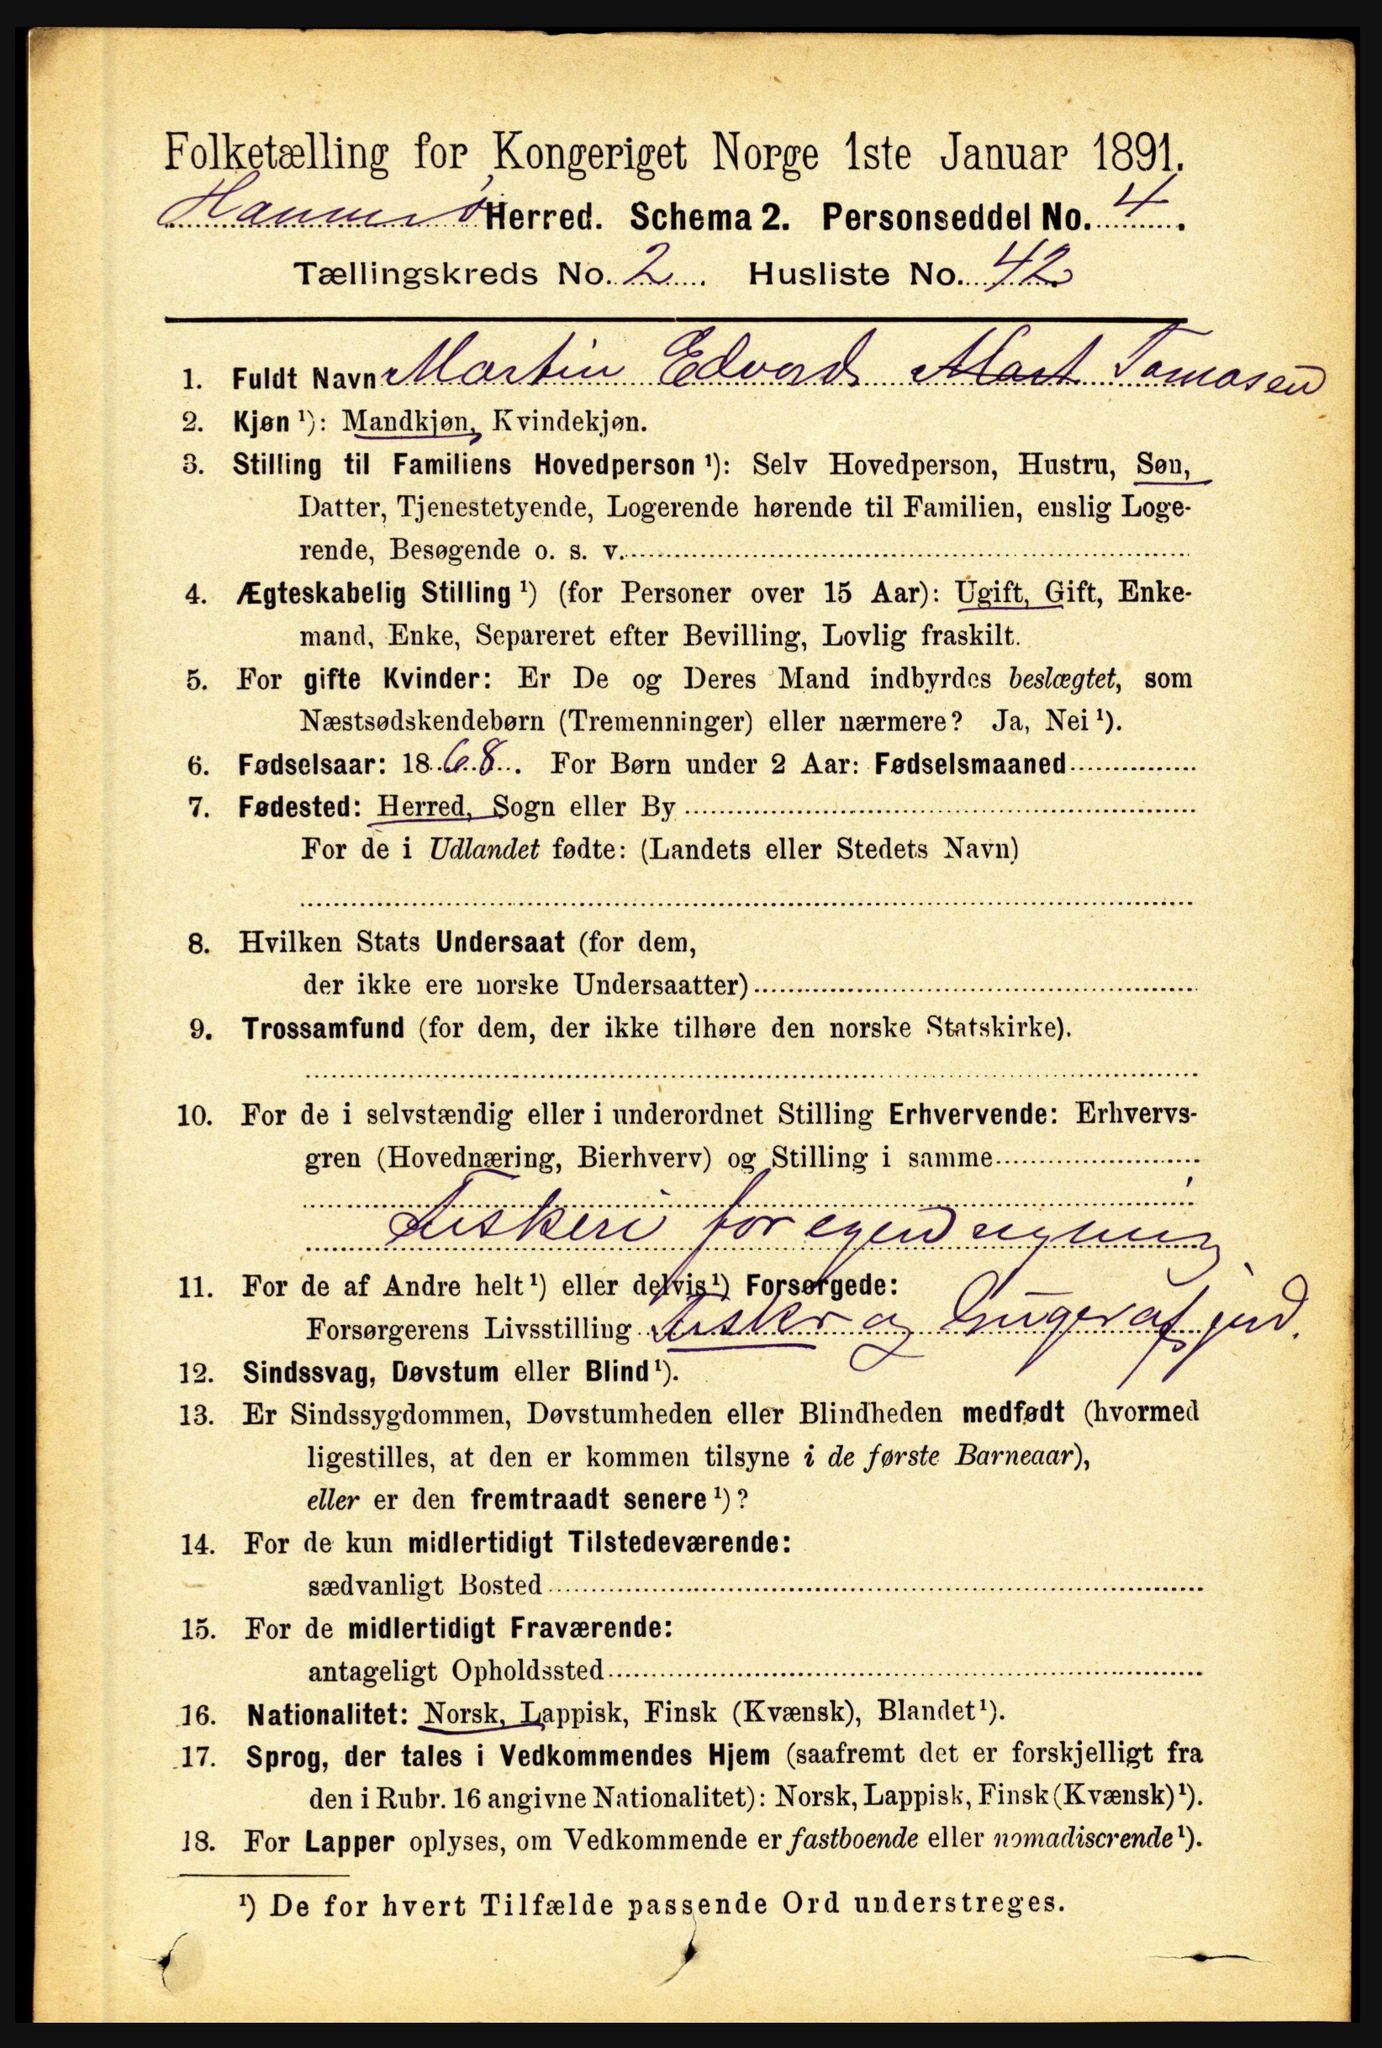 Folketælling for Kongeriget Norge 1ste Januar 1891.
Hammerø Herred. Schema 2. Personseddel No. 4.
Tællingskreds No. 2. Husliste No. 42
1. Fuldt Navn Martin Edvard Mart Tomasen
2. Kjøn ¹): Mandkjøn, Kvindekjøn.
3. Stilling til Familiens Hovedperson ¹): Selv Hovedperson, Hustru, Søn,
Datter, Tjenestetyende, Logerende hørende til Familien, enslig Loge-
rende, Besøgende o. s. v.
4. Ægteskabelig Stilling ¹) (for Personer over 15 Aar): Ugift, Gift, Enke-
mand, Enke, Separeret efter Bevilling, Lovlig fraskilt.
5. For gifte Kvinder: Er De og Deres Mand indbyrdes beslægtet, som
Næstsødskendebørn (Tremenninger) eller nærmere? Ja, Nei ¹).
6. Fødselsaar: 1868. For Børn under 2 Aar: Fødselsmaaned
7. Fødested: Herred, Sogn eller By
For de i Udlandet fødte: (Landets eller Stedets Navn)
8. Hvilken Stats Undersaat (for dem,
der ikke ere norske Undersaatter)
9. Trossamfund (for dem, der ikke tilhøre den norske Statskirke).
10. For de i selvstændig eller i underordnet Stilling Erhvervende: Erhvervs-
gren (Hovednæring, Bierhverv) og Stilling i samme
Fiskeri for egen
11. For de af Andre helt ¹) eller delvis ¹) Forsørgede:
Forsørgerens Livsstilling Fisker og Bruger af jord.
12. Sindssvag, Døvstum eller Blind ¹).
13. Er Sindssygdommen, Døvstumheden eller Blindheden medfødt (hvormed
ligestilles, at den er kommen tilsyne i de første Barneaar),
eller er den fremtraadt senere ¹)?
14. For de kun midlertidigt Tilstedeværende:
sædvanligt Bosted
15. For de midlertidigt Fraværende:
antageligt Opholdssted
16. Nationalitet: Norsk, Lappisk, Finsk (Kvænsk), Blandet ¹).
17. Sprog, der tales i Vedkommendes Hjem (saafremt det er forskjelligt fra
den i Rubr. 16 angivne Nationalitet): Norsk, Lappisk, Finsk (Kvænsk) ¹).
18. For Lapper oplyses, om Vedkommende er fastboende eller nomadiserende ¹).
¹) De for hvert Tilfælde passende Ord understreges.